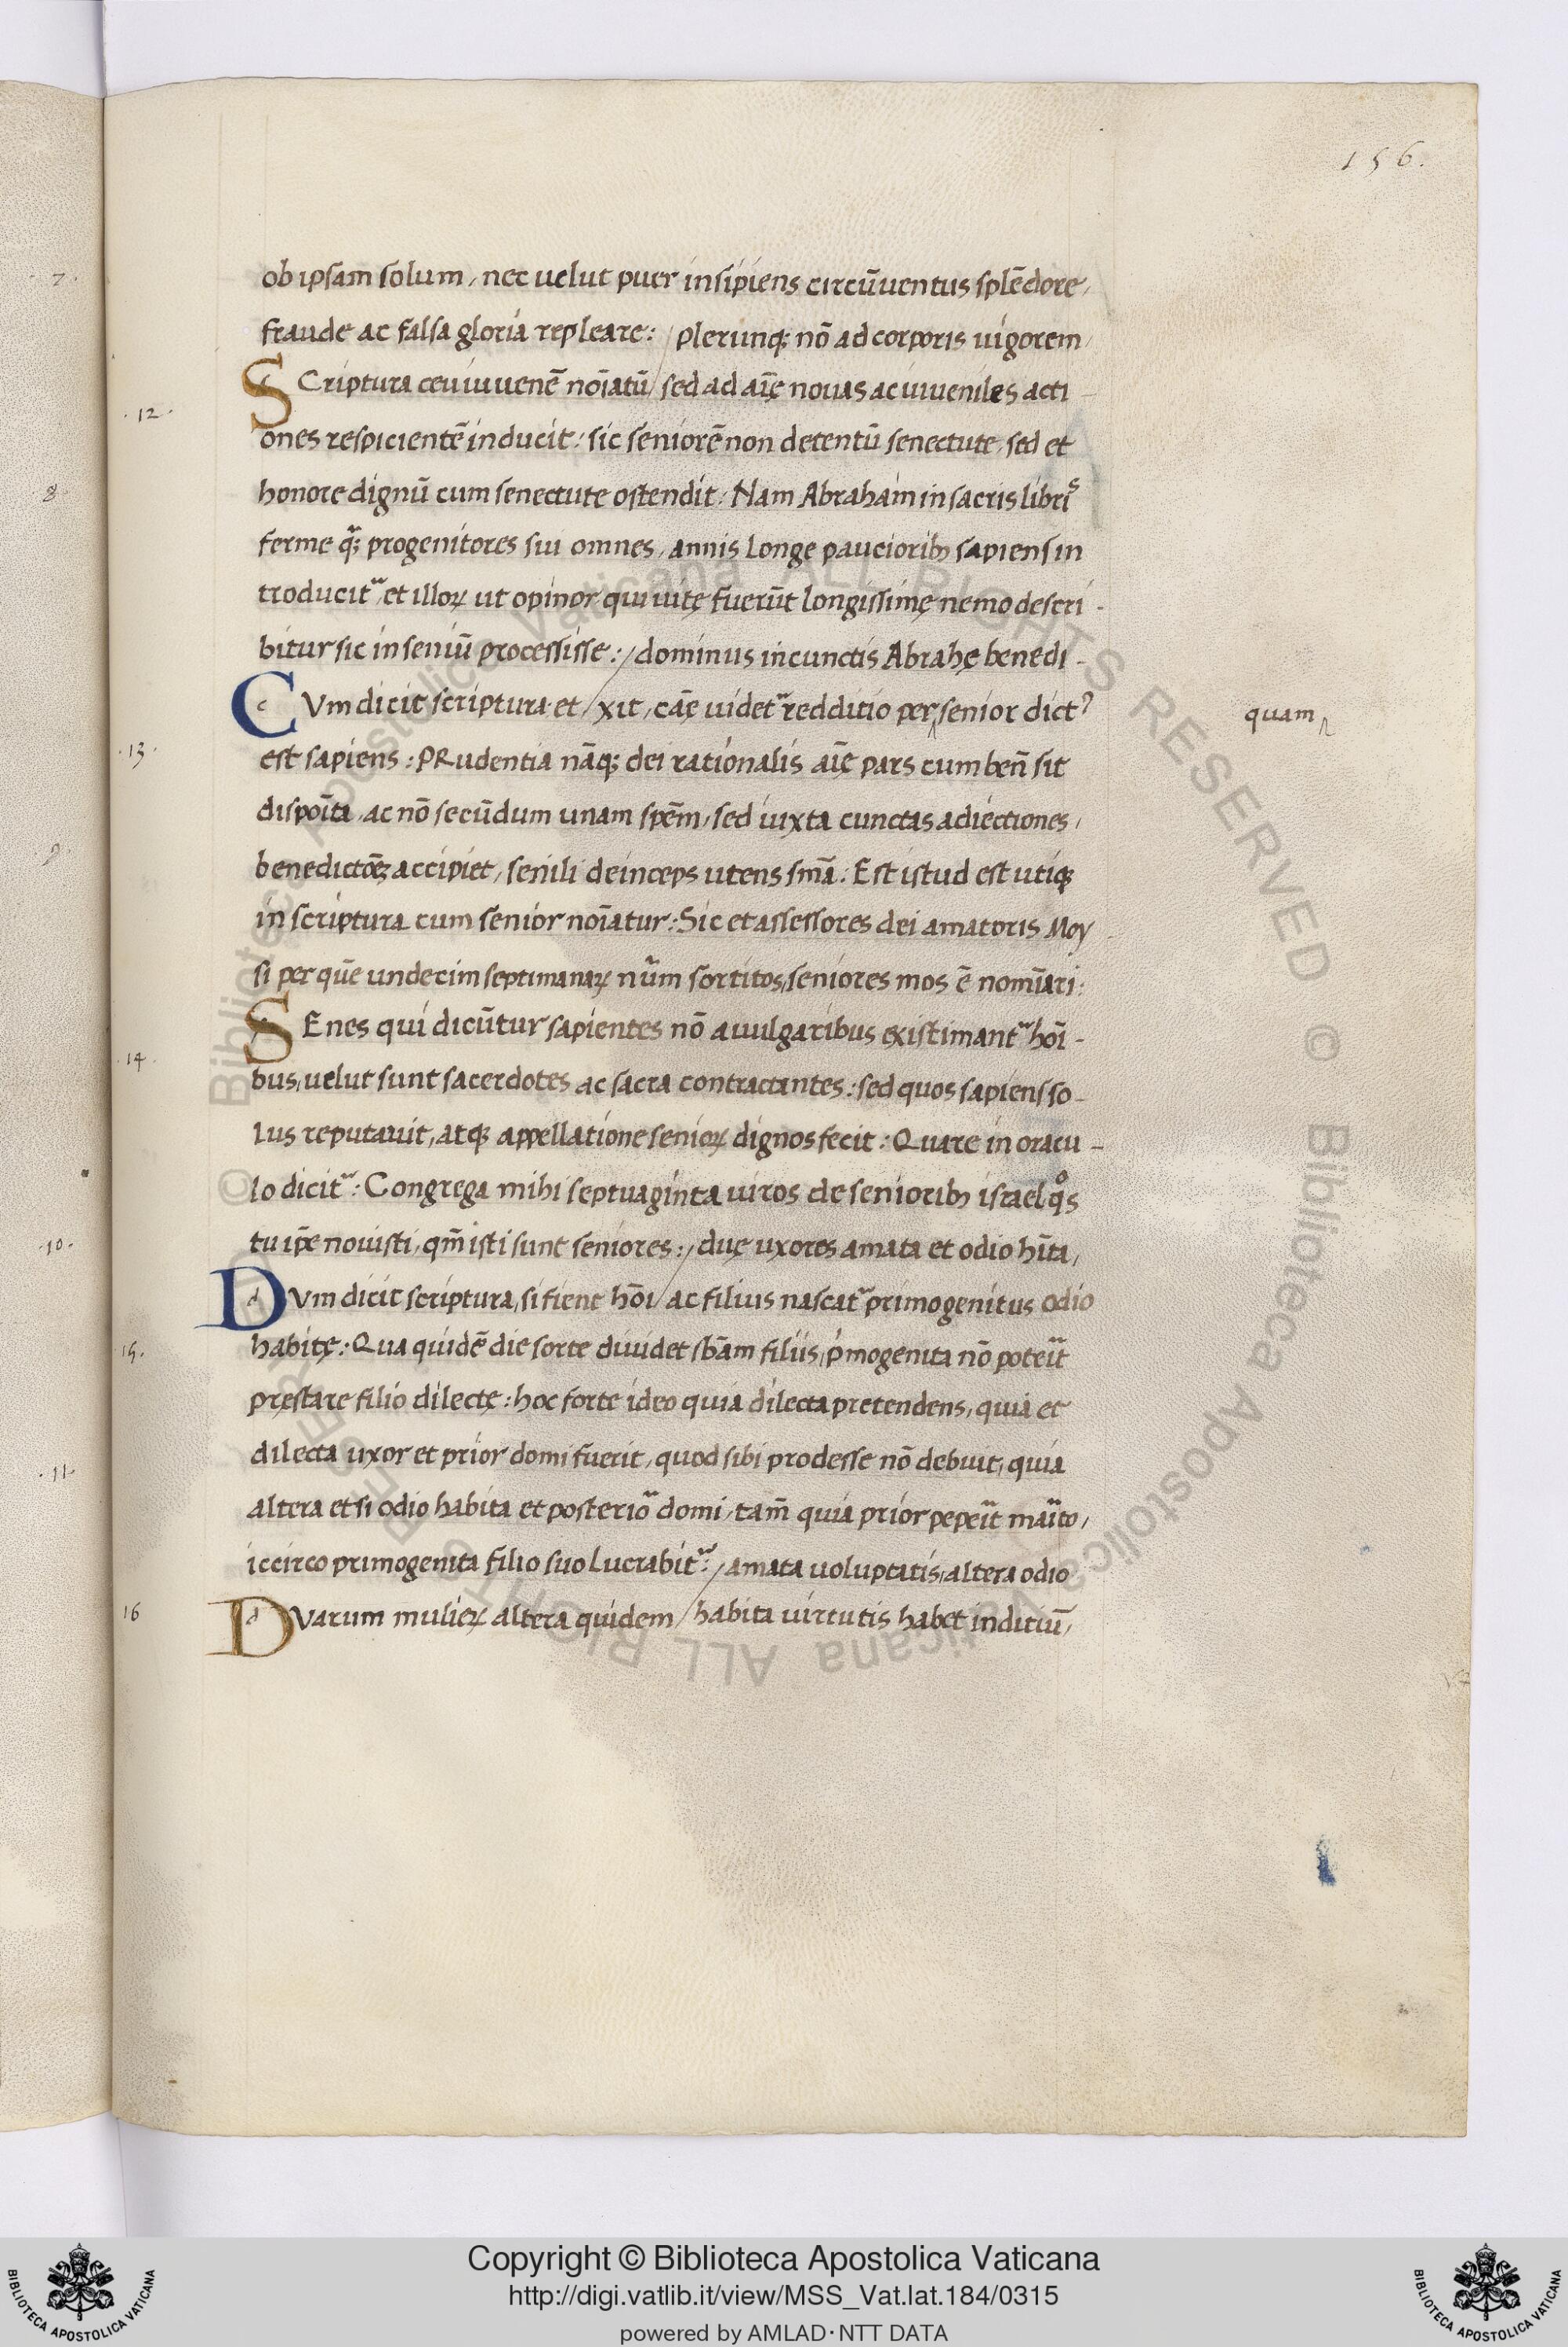 156.
ob ipsam solum, nec uelut puer insipiens circūuentus splēdore,
fraude ac falsa gloria repleare: / plerunq; nō ad corporis uigorem,
12.
SCriptura ceu iuuenē noīatū / sed ad aīę nouas ac iuueniles acti-
ones respicientē inducit: sic seniorē non detentū senectute, sed et
honore dignū cum senectute ostendit. Nam Abraham in sacris libris
ferme q̃; progenitores sui omnes, annis longe paucioribꝫ sapiens in
troducit᷑, et illoꝝ ut opinor qui uitę fuerūt longissimę nemo descri-
bitur sic in seniū processisse: / dominus in cunctis Abrahę benedi-
13.
CVm dicit scriptura, et / xit, cāę uidet᷑ redditio per‸senior dictꝰ
quam
est sapiens: PRudentia nāq; dei rationalis aīę pars cum ben̄ sit
dispoīta, ac nō secūdum unam spēm, sed iuxta cunctas adiectiones,
benedictōeꝫ accipiet, senili deinceps utens sm̄a: Est istud est utiq;
in scriptura cum senior noīatur: Sic et assessores dei amatoris Moy
si per quē undecim septimanaꝝ nūm sortitos, seniores mos ē nomīari:
14.
SEnes qui dicūtur sapientes nō a uulgaribus existimant᷑ hoī-
bus, uelut sunt sacerdotes ac sacra contractantes: sed quos sapiens so-
lus reputauit, atq; appellatione senioꝝ dignos fecit: Quare in oracu-
lo dicit᷑: Congrega mihi septuaginta uiros de senioribꝫ israel qͦs
tu ip̄e nouisti, qm̄ isti sunt seniores: / duę uxores amata et odio hīta,
DVm dicit scriptura, si fient hōi / ac filius nascat᷑ primogenitus odio
15.
habitę: Qua quidē die sorte diuidet sb̄am filiis, pͥmogenita nō poteīt
pręstare filio dilectę: hoc forte ideo quia dilecta pretendens, quia et
dilecta uxor et prior domi fuerit, quod sibi prodesse nō debuit, quia
altera et si odio habita et posterio᷑ domi, tam̄ quia prior pepeīt maīto,
iccirco primogenita filio suo lucrabit᷑: / amata uoluptatis, altera odio
16
DVarum mulieꝝ altera quidem / habita uirtutis habet inditiū,
7.
8.
9
10.
11.
Copyright © Biblioteca Apostolica Vaticana
http://digi.vatlib.it/view/MSS_Vat.lat.184/0315
powered by AMLAD·NTT DATA
BIBLIOTECA APOSTOLICA VATICANA
BIBLIOTECA APOSTOLICA VATICANA
© Biblioteca Apostolica Vaticana ALL RIGHTS RESERVED © Biblioteca Apostolica Vaticana ALL RIGHTS RESERVED